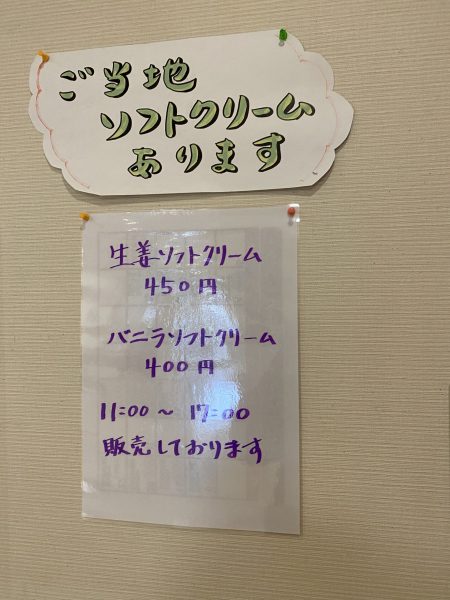 ご当地
ソフトクリーム
あります
生姜ソフトクリーム
450円
バニラソフトクリーム
400円
11:00～17:00
販売しております